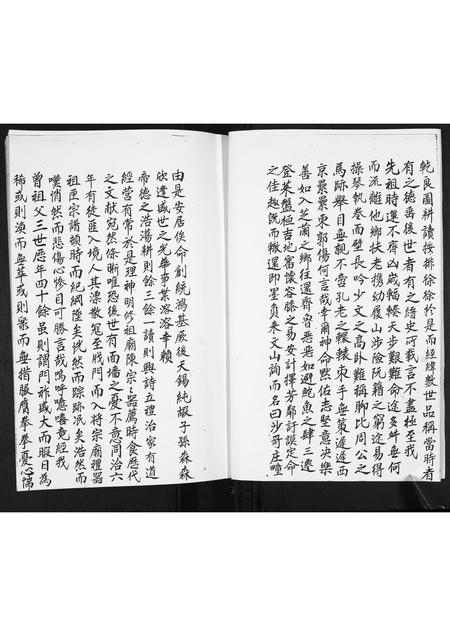 乾良圃耕讀按排徐徐於是而經緯數世品稱當時者
有之德垂後世者有之縉史可載言不盡極至我
先祖時運不齊凶歲輻輳天步艱難命途多舛無何
而流離他鄉扶老携幼履山涉險阮籍之窮途易得
操琴執卷面壁長吟少文之高卧難稱聊比周公之
馬跡舉目無親不啻孔老之轍轅束手無策遲遲西
京景景東郭傷何言哉幸爾神命默佐志堅意决樂
善如入芝蘭之鄉往還齊魯惡惡如避鮑魚之肆三遶
登萊盤桓吉地審懷容膝之易安計擇芳鄰訏謨定命
之佳趣既而轍還即墨負耒文山詢而名曰沙哥庄噎
由是安居俟命創統鴻基厥後天錫純嘏子孫森森
欣逢盛世之光華事業溶溶幸賴
帝德之浩蕩耕則餘三餘一讀則興詩立禮治家有道
經營有常於是理神明修祖廟陳宗器薦時食歷代
之文献宛然條晰唯恐後世有面墻之憂不意同治六
年有徒匪入境人其漂散寃至戕門而入將宗廟禮器
祖匣宗譜頓時而紀綱墜矣恍然而踪跡泯矣浩然而
嘆悄然而悲傷心慘目可勝言哉嗚呼噫嘻竟經我
曾祖父三世歷年四十餘虽則謂門祚或大而服日為
稀或則渙而無萃或則聚而無措服膺拳拳憂心惴